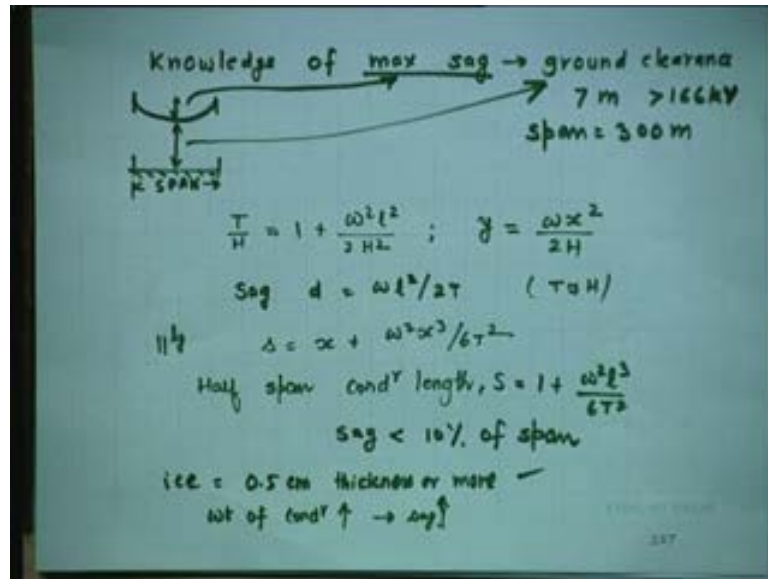 Knowledge of max sag → ground clearance
7 m > 166 kV
span = 300 m
SPAN
T/H = 1 + ω²l²/2H² ; y = ωx²/2H
Sag d = ωl²/2T (T≅H)
lllly s = x + ω²x³/6T²
Half span condr length, S = l + ω²l³/6T²
sag < 10% of span
ice = 0.5 cm thickness or more
wt of condr ↑ → sag ↑